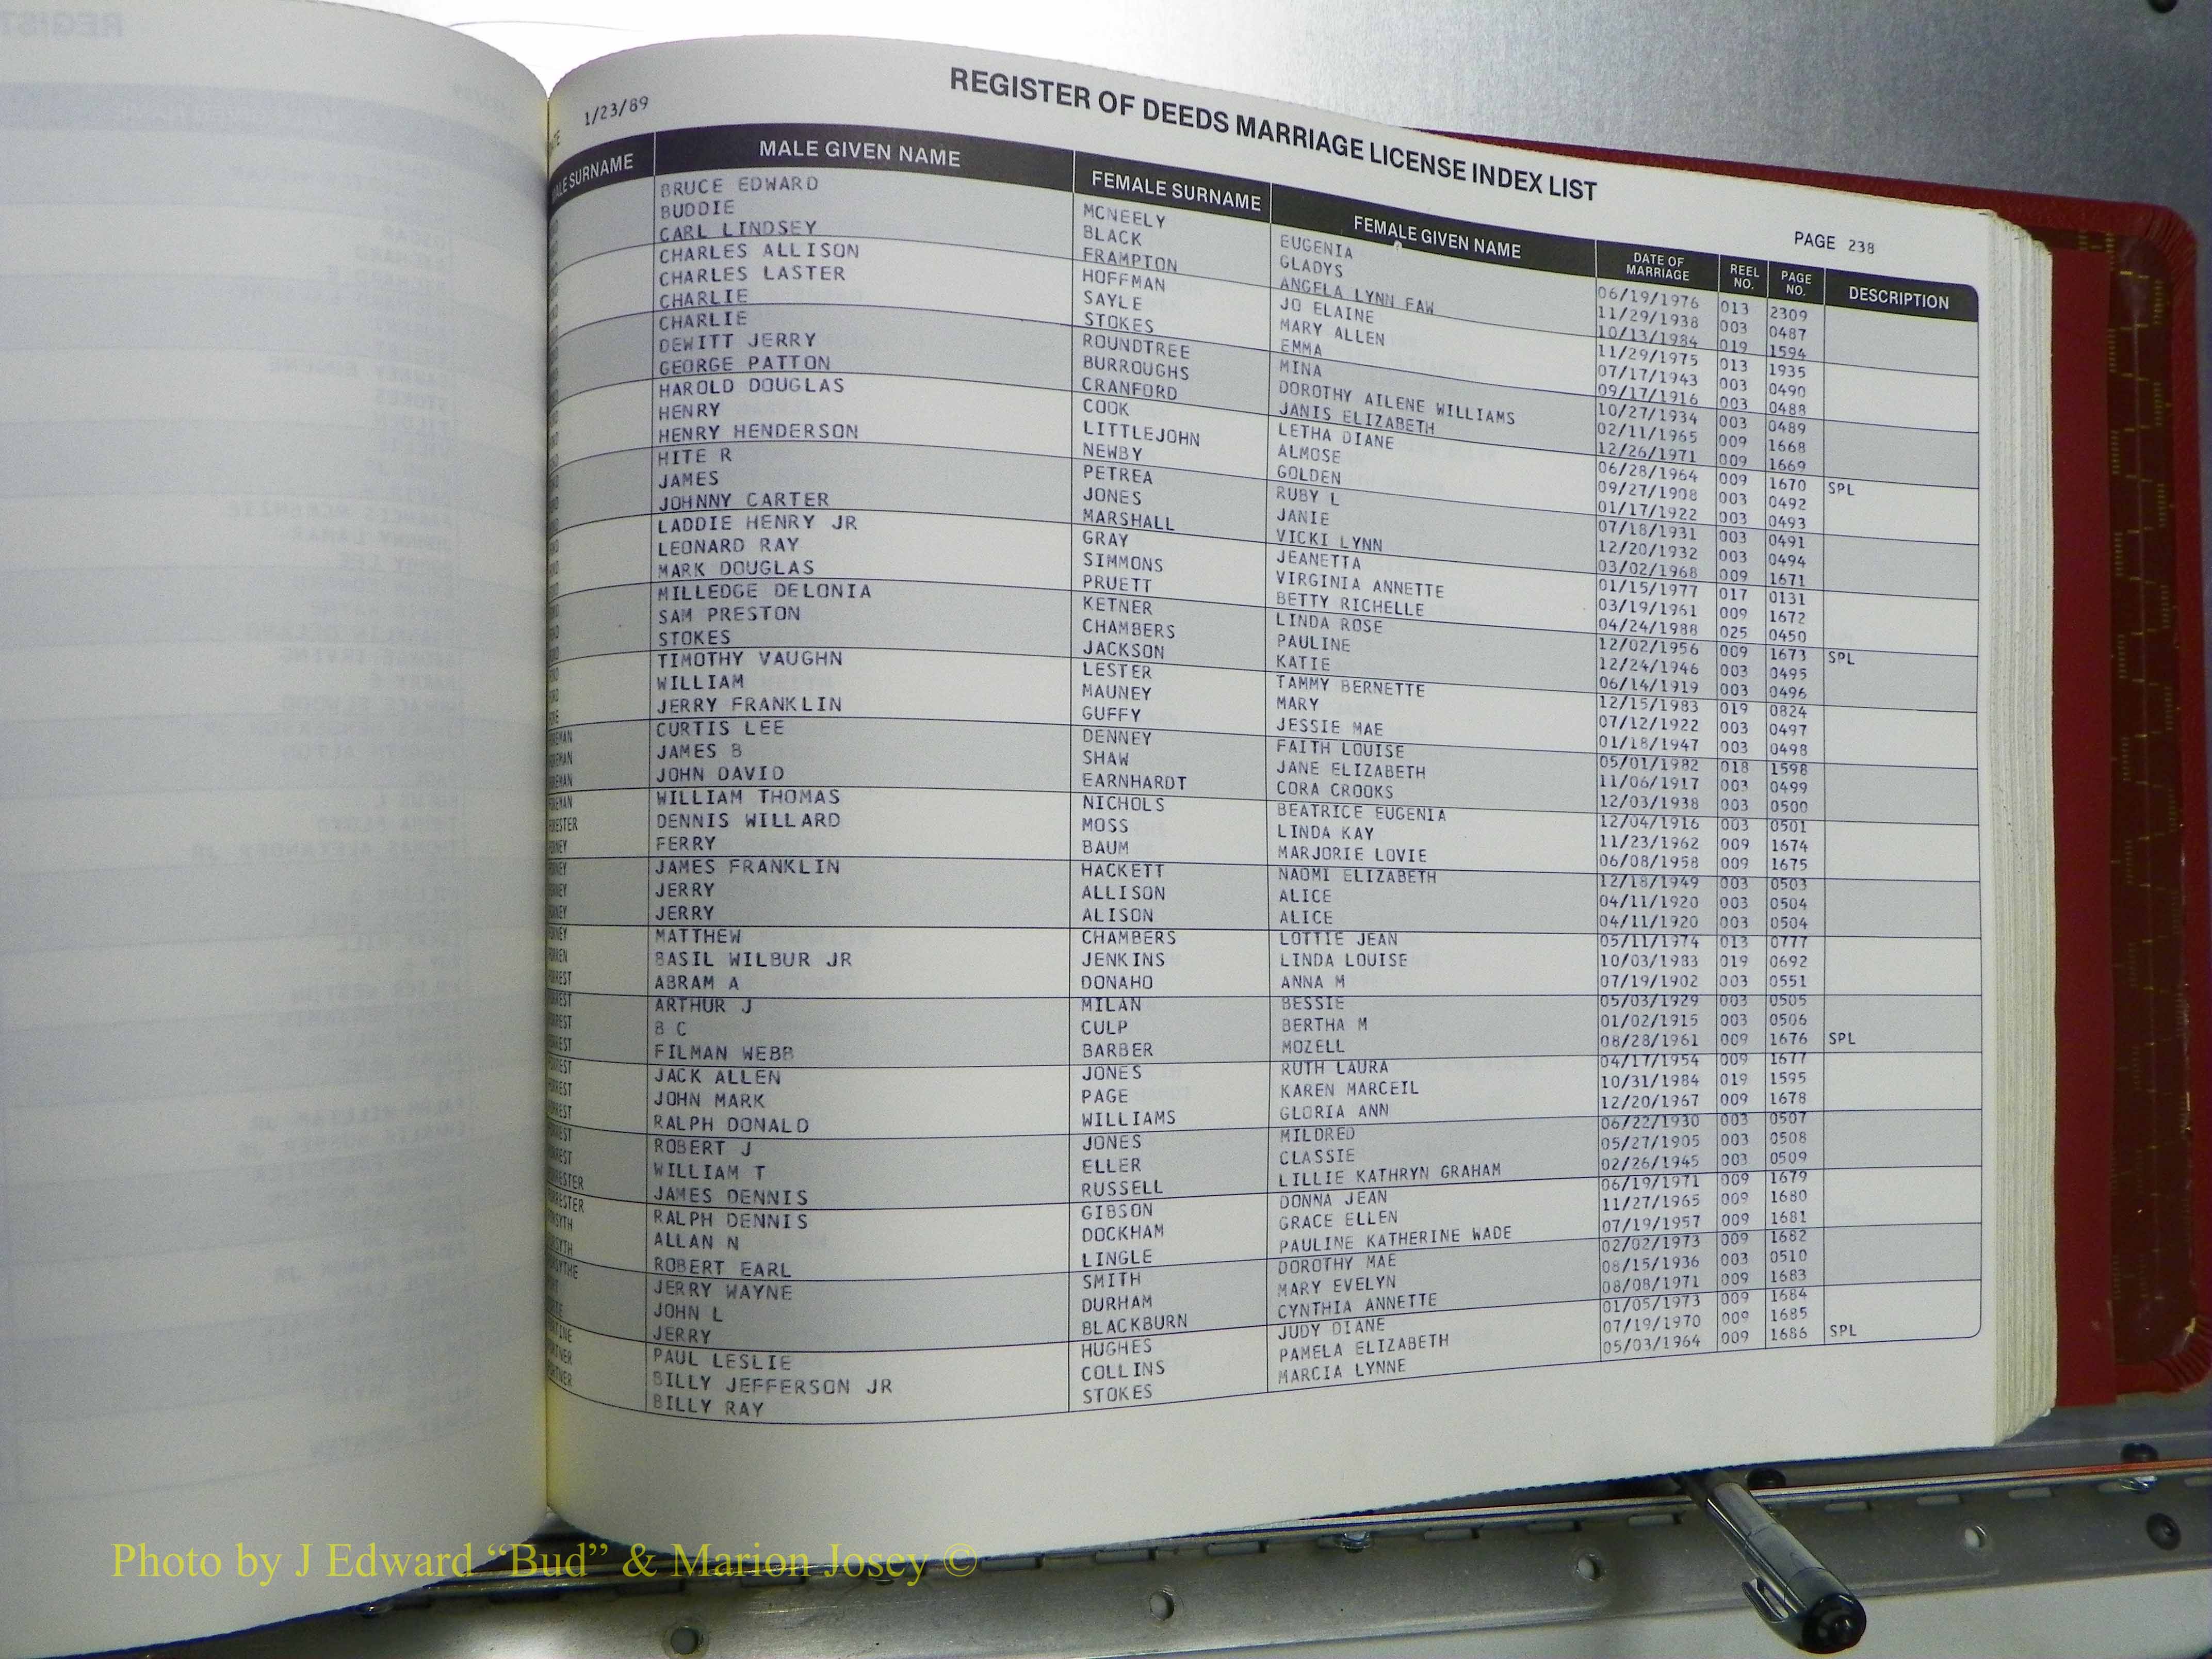 1/23/89
REGISTER OF DEEDS MARRIAGE LICENSE INDEX LIST
PAGE 238
SURNAME MALE GIVEN NAME FEMALE SURNAME FEMALE GIVEN NAME DATE OF MARRIAGE REEL NO. PAGE NO. DESCRIPTION
BRUCE EDWARD MCNEELY EUGENIA 06/19/1976 013 2309
BUDDIE BLACK GLADYS 11/29/1938 003 0487
CARL LINDSEY FRAMPTON ANGELA LYNN FAW 10/13/1984 019 1594
CHARLES ALLISON HOFFMAN JO ELAINE 11/29/1975 013 1935
CHARLES LASTER SAYLE MARY ALLEN 07/17/1943 003 0490
CHARLIE STOKES EMMA 09/17/1916 003 0488
CHARLIE ROUNDTREE MINA 10/27/1934 003 0489
DEWITT JERRY BURROUGHS DOROTHY AILENE WILLIAMS 02/11/1965 009 1668
GEORGE PATTON CRANFORD JANIS ELIZABETH 12/26/1971 009 1669
HAROLD DOUGLAS COOK LETHA DIANE 06/28/1964 009 1670 SPL
HENRY LITTLEJOHN ALMOSE 09/27/1908 003 0492
HENRY HENDERSON NEWBY GOLDEN 01/17/1922 003 0493
HITE R PETREA RUBY L 07/18/1931 003 0491
JAMES JONES JANIE 12/20/1932 003 0494
JOHNNY CARTER MARSHALL VICKI LYNN 03/02/1968 009 1671
LADDIE HENRY JR GRAY JEANETTA 01/15/1977 017 0131
LEONARD RAY SIMMONS VIRGINIA ANNETTE 03/19/1961 009 1672
MARK DOUGLAS PRUETT BETTY RICHELLE 04/24/1988 025 0450
MILLEDGE DELONIA KETNER LINDA ROSE 12/02/1956 009 1673 SPL
SAM PRESTON CHAMBERS PAULINE 12/24/1946 003 0495
STOKES JACKSON KATIE 06/14/1919 003 0496
TIMOTHY VAUGHN LESTER TAMMY BERNETTE 12/15/1983 019 0824
WILLIAM MAUNEY MARY 07/12/1922 003 0497
JERRY FRANKLIN GUFFY JESSIE MAE 01/18/1947 003 0498
CURTIS LEE DENNEY FAITH LOUISE 05/01/1982 018 1598
JAMES B SHAW JANE ELIZABETH 11/06/1917 003 0499
JOHN DAVID EARNHARDT CORA CROOKS 12/03/1938 003 0500
WILLIAM THOMAS NICHOLS BEATRICE EUGENIA 12/04/1916 003 0501
DENNIS WILLARD MOSS LINDA KAY 11/23/1962 009 1674
FERRY BAUM MARJORIE LOVIE 06/08/1958 009 1675
JAMES FRANKLIN HACKETT NAOMI ELIZABETH 12/18/1949 003 0503
JERRY ALLISON ALICE 04/11/1920 003 0504
JERRY ALISON ALICE 04/11/1920 003 0504
MATTHEW CHAMBERS LOTTIE JEAN 05/11/1974 013 0777
BASIL WILBUR JR JENKINS LINDA LOUISE 10/03/1983 019 0692
ABRAM A DONAHO ANNA M 07/19/1902 003 0551
ARTHUR J MILAN BESSIE 05/03/1929 003 0505
B C CULP BERTHA M 01/02/1915 003 0506
FILMAN WEBB BARBER MOZELL 08/28/1961 009 1676 SPL
JACK ALLEN JONES RUTH LAURA 04/17/1954 009 1677
JOHN MARK PAGE KAREN MARCEIL 10/31/1984 019 1595
RALPH DONALD WILLIAMS GLORIA ANN 12/20/1967 009 1678
ROBERT J JONES MILDRED 06/22/1930 003 0507
WILLIAM T ELLER CLASSIE 05/27/1905 003 0508
JAMES DENNIS RUSSELL LILLIE KATHRYN GRAHAM 02/26/1945 003 0509
RALPH DENNIS GIBSON DONNA JEAN 06/19/1971 009 1679
ALLAN N DOCKHAM GRACE ELLEN 11/27/1965 009 1680
ROBERT EARL LINGLE PAULINE KATHERINE WADE 07/19/1957 009 1681
JERRY WAYNE SMITH DOROTHY MAE 02/02/1973 009 1682
JOHN L DURHAM MARY EVELYN 08/15/1936 003 0510
JERRY BLACKBURN CYNTHIA ANNETTE 08/08/1971 009 1683
PAUL LESLIE HUGHES JUDY DIANE 01/05/1973 009 1684
BILLY JEFFERSON JR COLLINS PAMELA ELIZABETH 07/19/1970 009 1685
BILLY RAY STOKES MARCIA LYNNE 05/03/1964 009 1686 SPL
Photo by J Edward “Bud” & Marion Josey ©